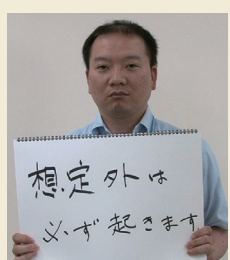 想定外は
必ず起きます